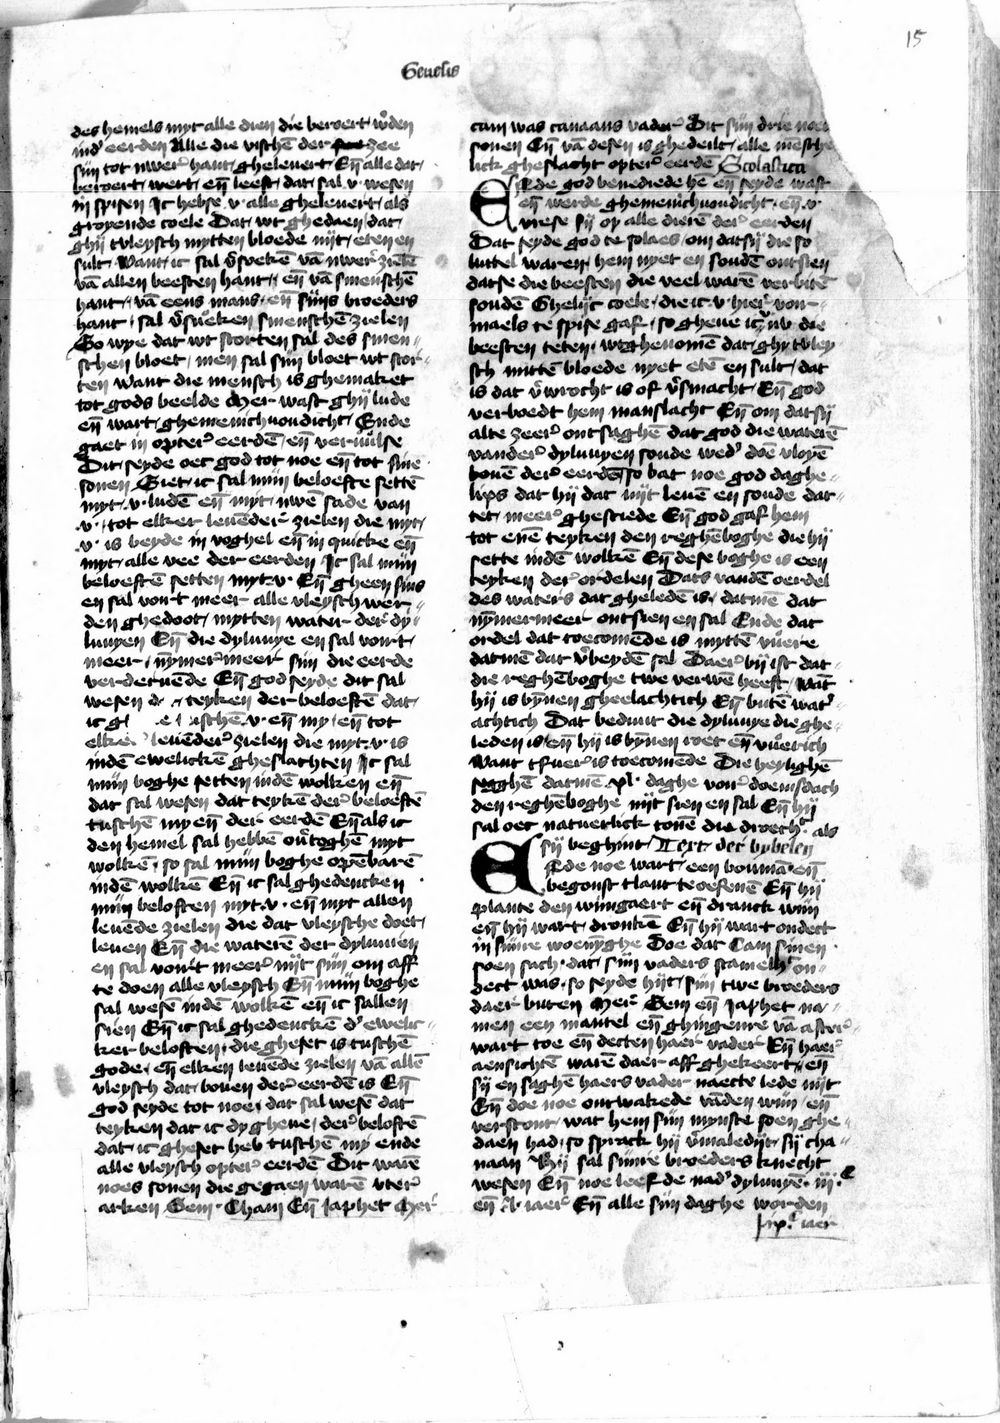 15
Genesis
des hemels myt alle dien die beroert w̄den
ind' eerden Alle die visschē der zee
sijn tot uwer hant ghelevert Eñ alle dat
beroert wert eñ leeft dat sal v wesen
in spisen Ic hebse v alle ghelevert als
groyende coele Dat wt ghedaen dat
ghij tvleysch mytten bloede nijt eten en
sult Want ic sal v̄soekē vā uwer zielē
vā allen beesten hant eñ vā smenschē
hant vā eens mans eñ sijns broeders
hant sal v̄sueken smenschē zielen
So wye dat wt storten sal des smen
schen bloet men sal sijn bloet wt stor
ten want die mensch is ghemaket
tot gods beelde Mer wast ghij lude
eñ wart ghemenichuoudicht Ende
gaet in opter eerdē eñ vervulse
Dit seyde oec god tot noe eñ tot sinē
sonen Siet ic sal mijn beloefte settē
myt v ludē eñ myt uwē sade van
v tot elker levēder zielen die myt
v is beyde in voghel eñ in quicke eñ
myt alle vee der eerden Ic sal mijn
beloeftē setten myt v Eñ gheen sins
en sal vort meer alle vleysch wer
den ghedoot mytten water der dy
luuyen Eñ die dyluuye en sal vort
meer nymermeer sijn die eerde
verdervēde Eñ god seyde dit sal
wesen teyken der beloeftē dat
ic tusschē v eñ my eñ tot
elke levēder zielen die myt v is
indē ewelickē gheslachten Ic sal
mijn boghe setten indē wolken eñ
dat sal wesen dat teykē der beloeftē
tuschē my eñ der eerdē Eñ als ic
den hemel sal hebbē ov̄toghen myt
wolkē so sal mijn boghe opēbarē
indē wolkē Eñ ic sal ghedencken
mijn beloften myt v eñ myt allen
levēde zielen die dat vleysche doet
leven Eñ die waterē der dyluuien
en sal vort meer nijt sijn om aff
te doen alle vleysch Eñ mijn boghe
sal wesē indē wolkē eñ ic sallen
sien Eñ ic sal ghedenckē d' ewelic
ker beloften die gheset is tuschē
gode eñ elken levēde zielen vā allē
vleysch dat boven der eerdē is Eñ
god seyde tot noe dat sal wesē dat
teyken dat ic dy gheve der beloftē
dat ic gheset heb tuschē my ende
alle vleysch opter eerdē Dit warē
noes sonen die gegaen warē vter
arken Sem Cham Eñ Japhet Mer
cam was canaans vader Dit sijn drie noes
sonen Eñ vā desen is ghedeilt alle mesche
lick gheslacht opter eerdē Scolastica
Ende god benediede hē eñ seyde wast
eñ werde ghemenichuoudicht eñ v
vrese sij op alle dierē der eerden
Dat seyde god te solaes om dat sij die so
luttel waren hem nyet en soudē ontsien
datse die beesten die veel warē verbitē
soudē Ghelijc coele die ic v hier vor
maels te spise gaf so gheue icz uw die
beesten teten wtghenomē dat ghy tvley
sch mittē bloede nyet etē en sult dat
is dat v̄wrocht is of v̄smacht Eñ god
verboedt hem manslacht Eñ om dat sij
alte zeer ontsaghē dat god die waterē
vander dyluuyen soude wed' doē vloyē
bovē der eerdē so bat noe god daghe
lixs dat hij dat nijt levē en soude dat
tet meer ghesciede Eñ god gaf hem
tot enē teyken den reghēboghe die hij
sette indē wolkē Eñ dese boghe is een
teyken der ordelen Dats vandē oerdel
des waters dat gheledē is datmē dat
nymermeer ontsien en sal Ende dat
ordel dat toecomēde is myttē vuere
datmē dat v̄beydē sal Daer bij ist dat
die reghēboghe twe verwē heeft Wāt
hij is bynen gheelachtich Eñ butē wat'
achtich Dat bediut die dyluuye die ghe
leden is eñ hij is bynen roet eñ vuerich
Want tfuer is toecomēde Die heylighē
segghē datmē xl daghe vour doemsdach
den reghēboghe nijt sien en sal Eñ hij
sal oec natuerlick tonē die als
sij beghint Text der bybelen
Ende noe wart een boumā eñ
begonst tlant te oefenē Eñ hij
plante den wijngaert eñ dranck wijn
eñ hij wart dronkē Eñ hij wart ondect
in sijnre woenyghe Doe dat Cam sinen
soen sach dat sijn vaders on
dect was so seyde hijt sijn twe broeders
daer buten Mer Sem eñ Japhet na
men een mantel eñ ghingenre vā after
wart toe eñ decten haer vader Eñ haer
aensichtē warē daer aff ghekeert eñ
sij en saghē haers vader naecte lede nijt
Eñ doe noe ontwakede vāden wijn eñ
verstont wat hem sijn mynste soen ghe
daen had so sprack hij v̄maledijt sij cha
naan Hij sal sijnre broeders knecht
wesen Eñ noe leefde nad' dyluuyē iij c
eñ l iaer Eñ alle sijn daghe worden
iaer